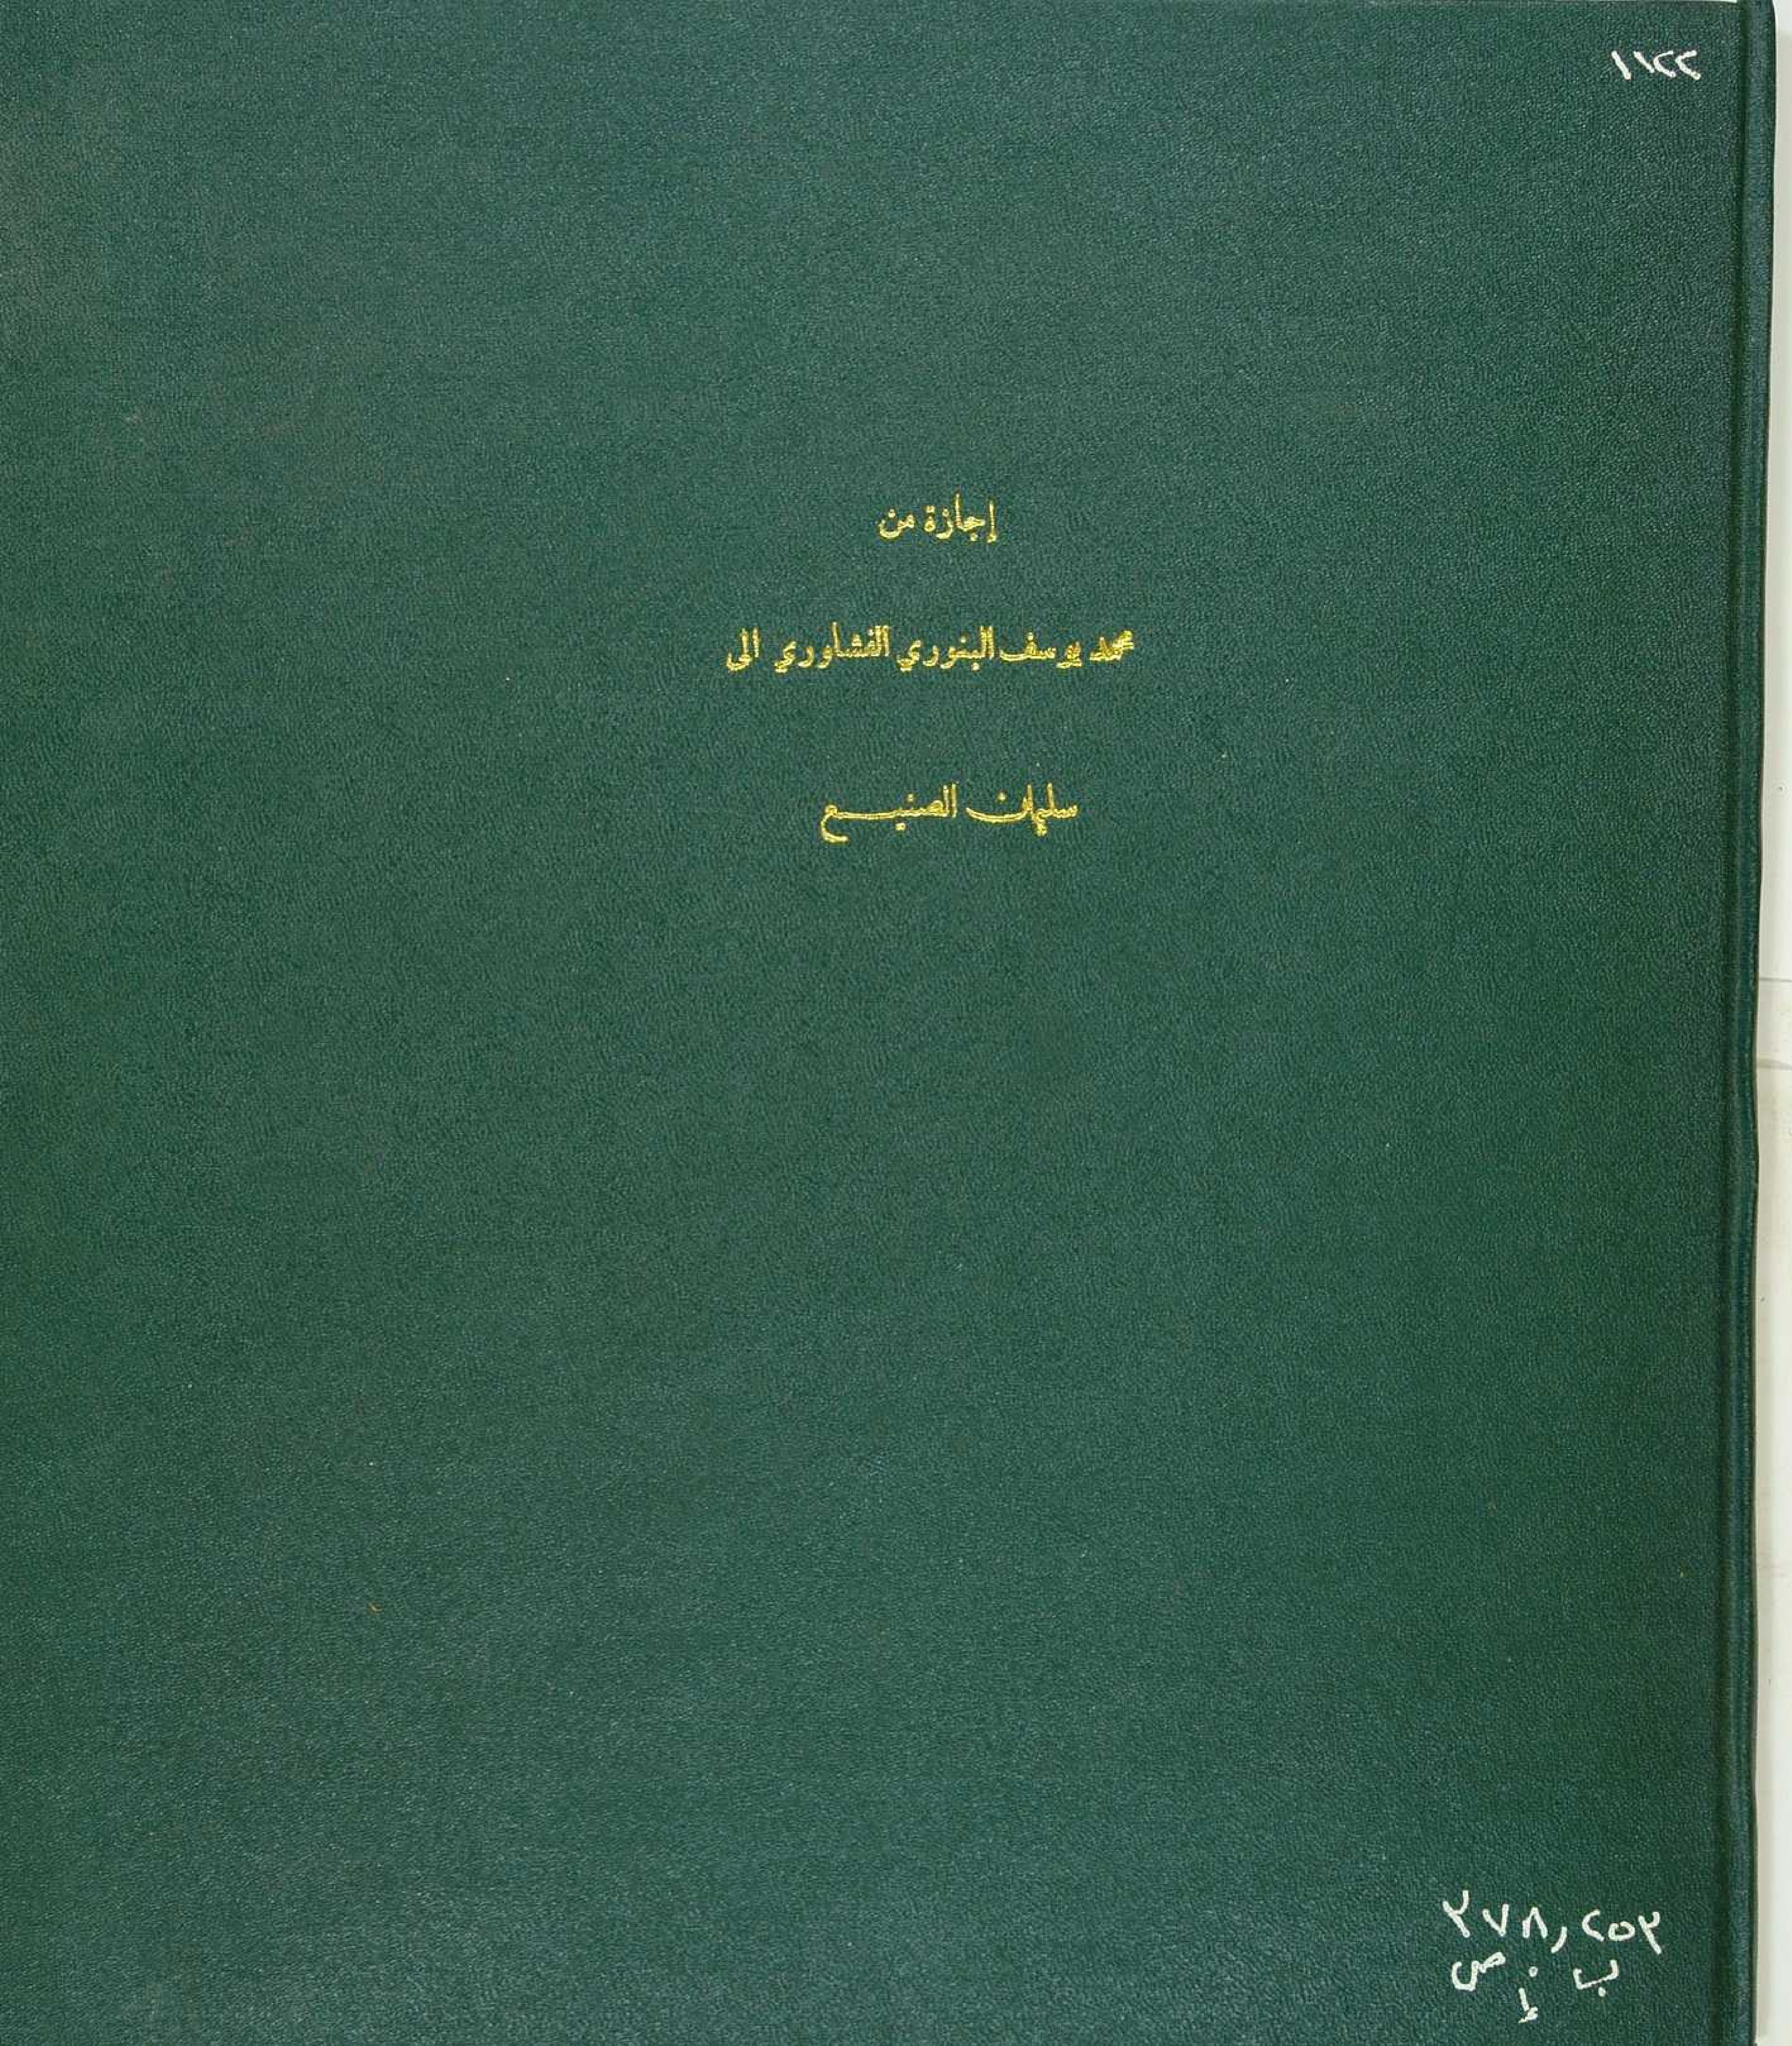 ١١٢٢
إجازة من
محمد يوسف البنوري الفشاوري الى
سليمان الصنيع
٢٧٨,٢٥٣
ب . ص
إ